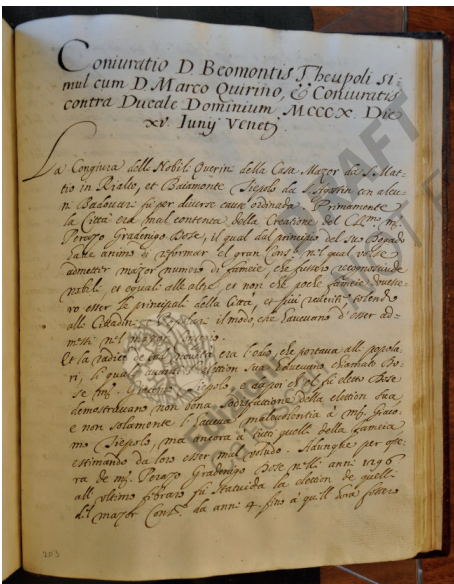 Coniuratio D. Beomontis Theupoli si=
mul cum D. Marco Quirino, & Coniuratis
contra Ducale Dominium MCCCX. Die
xv. Iunij Venet
La Congiura delli Nobili Querin della Casa Mazor da S. Mat
tio in Rialto, et Baiamonte Tiepolo da S. Agustin con alcu
ni Badoeri fù per diverse cause ordinada. Primamente
la Città era mal contenta della Creatione del
Pierazo Gradenigo Dose, il qual dal principio del suo Dogado
have animo di riformar el gran Cons. nel qual volse
admetter mazor numero di fameie, che fussero
nobili, et equali alle altre, et non che poche fameie
ro esser le principali della Città, et
alli Cittadini il modo, che havevano d'esser ad=
messi nel mazor
Et la radice de era l'odio, che portava alli popola=
ri, li quali avanti election sua havevano chiamato Do=
se Tiepolo, et dapoi ch'el fù eletto Dose
demostravano non bona satisfactione della election sua,
e non solamente l'haveva malevolentia à Giaco=
mo Tiepolo, ma ancora à tutti quelli della fameia
estimando da loro esser mal voludo. Adunque per ope=
ra de Pierazo Gradenigo Dose nelli anni 1296
all' ultimo fibraro fù statuida la election de quelli
del mazor Cons. da anni 4. fino à quell' hora
203
DRAFT
NOT